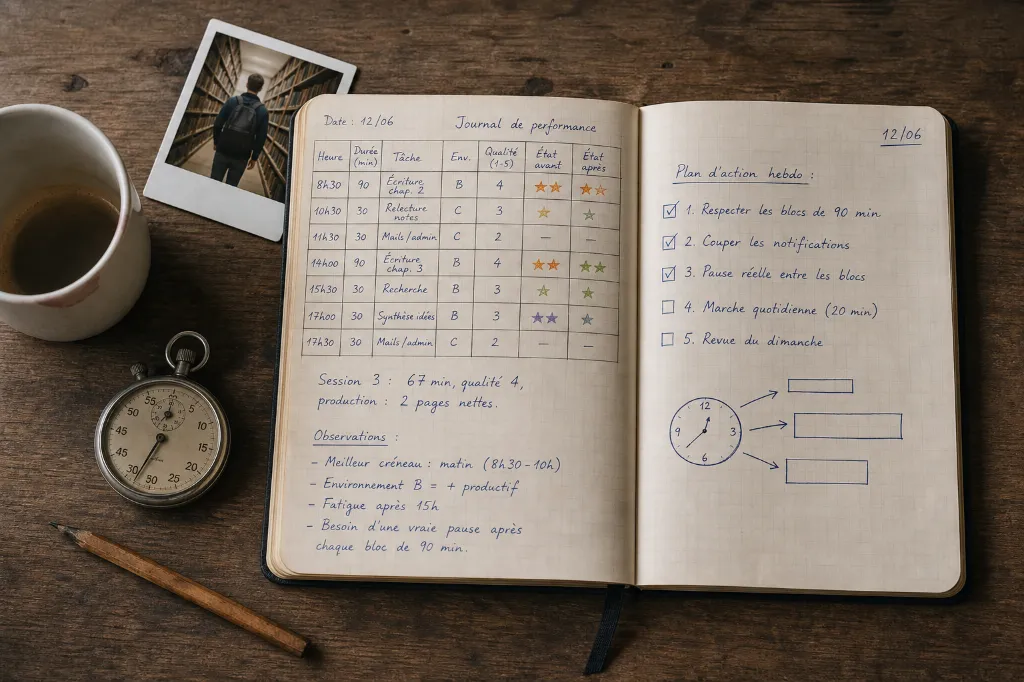 Date : 12/06
Journal de performance
Heure Durée (min) Tâche Env. Qualité (1-5) État avant État après
8h30 90 Écriture chap. 2 B 4 ★★ ★★
10h30 30 Relecture notes C 3 ★ ★
11h30 30 Mails/admin C 2 — —
14h00 90 Écriture chap. 3 B 4 ★★ ★★
15h30 30 Recherche B 3 ★ ★
17h00 30 Synthèse idées B 3 ★★ ★
17h30 30 Mails/admin C 2 — —
Session 3 : 67 min, qualité 4,
production : 2 pages nettes.
Observations :
– Meilleur créneau : matin (8h30-10h)
– Environnement B = + productif
– Fatigue après 15h
– Besoin d'une vraie pause après
chaque bloc de 90 min.
12/06
Plan d'action hebdo :
☑ 1. Respecter les blocs de 90 min
☑ 2. Couper les notifications
☑ 3. Pause réelle entre les blocs
☐ 4. Marche quotidienne (20 min)
☐ 5. Revue du dimanche
12
9 3
6
55 5
50
45 10
45 15
50 20
30 25